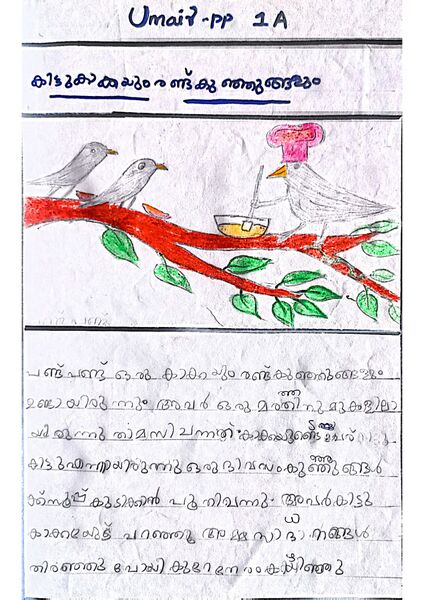 Umair-pp 1A
കിട്ടുകാക്കയും രണ്ട്കുഞ്ഞുങ്ങളും
പണ്ട്പണ്ട് ഒരു കാക്കയും രണ്ട്കുഞ്ഞുങ്ങളും
ഉണ്ടായിരുന്നും അവർ ഒരു മരത്തിനുമുകളിലാ
യിരുന്നു താമസിചന്നത്
കിട്ടുഎന്നായിരുന്നു ഒരുദിവസം കുഞ്ഞുങ്ങൾ
ക്ക്സൂപ്പ് കുടിക്കാൻ അവർകിട്ടു
കാക്കയോട് പറഞ്ഞു അമ്മ സാധാനങ്ങൾ
തിരഞ്ഞ് പോയി കുറേനേരംകയിഞ്ഞു